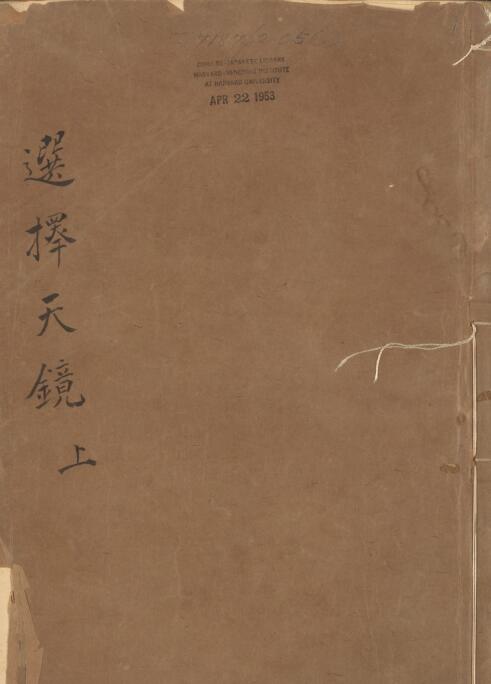 CHINESE-JAPANESE LIBRARY
HARVARD-YENCHING INSTITUTE
AT HARVARD UNIVERSITY
APR 22 1953
選擇天鏡 上